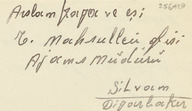 256417
Arslan Zarga ve eşi
T. Mahsulleri Ofisi
Ajans Müdürü
Silvan
Diyarbakır